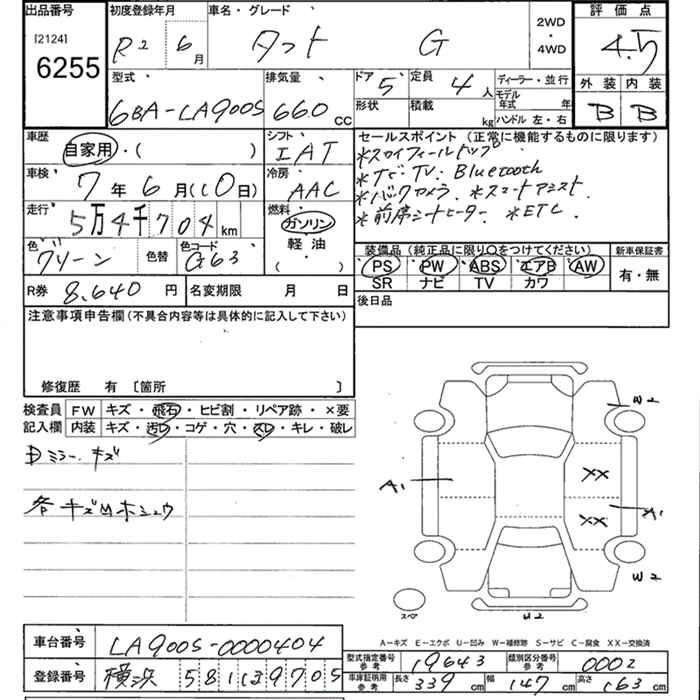 出品番号 [2124] 6255
初度登録年月 R2 6月
車名・グレード タフト G
2WD・4WD
評価点 4.5
外装 B 内装 B
型式 6BA-LA900S
排気量 660 CC
ドア 5
形状
定員 4人
積載 kg
ディーラー・並行
モデル年式 年
ハンドル 左・右
車歴 自家用・( )
シフト IAT
車検 7年6月(10日)
冷房 AAC
走行 5万4千704km
燃料 ガソリン
軽油
( )
色 グリーン 色替
色コード G63
R券 8,640円
名変期限 月 日
セールスポイント(正常に機能するものに限ります)
*スカイフィールトップ
*ナビ・TV. Bluetooth
*バックカメラ *スマートアシスト
*前席シートヒーター *ETC
装備品(純正品に限り○をつけてください)
新車保証書
PS PW ABS エアB AW
SR ナビ TV カワ
有・無
後日品
注意事項申告欄(不具合内容等は具体的に記入して下さい)
修復歴 有 〔箇所 〕
検査員記入欄
FW キズ・飛石・ヒビ割・リペア跡・×要
内装 キズ・汚レ・コゲ・穴・スレ・キレ・破レ
ミラー キズ
各 キズ凹ホシュウ
W2
A1
XX
XX
A1
W2
スペア
U2
A-キズ E-エクボ U-凹み W-補修跡 S-サビ C-腐食 XX-交換済
車台番号 LA900S-0000404
登録番号 横浜 581 139705
型式指定番号 参考 19643
類別区分番号 参考 0002
車庫証明用 参考 長さ 339cm 幅 147cm 高さ 163cm